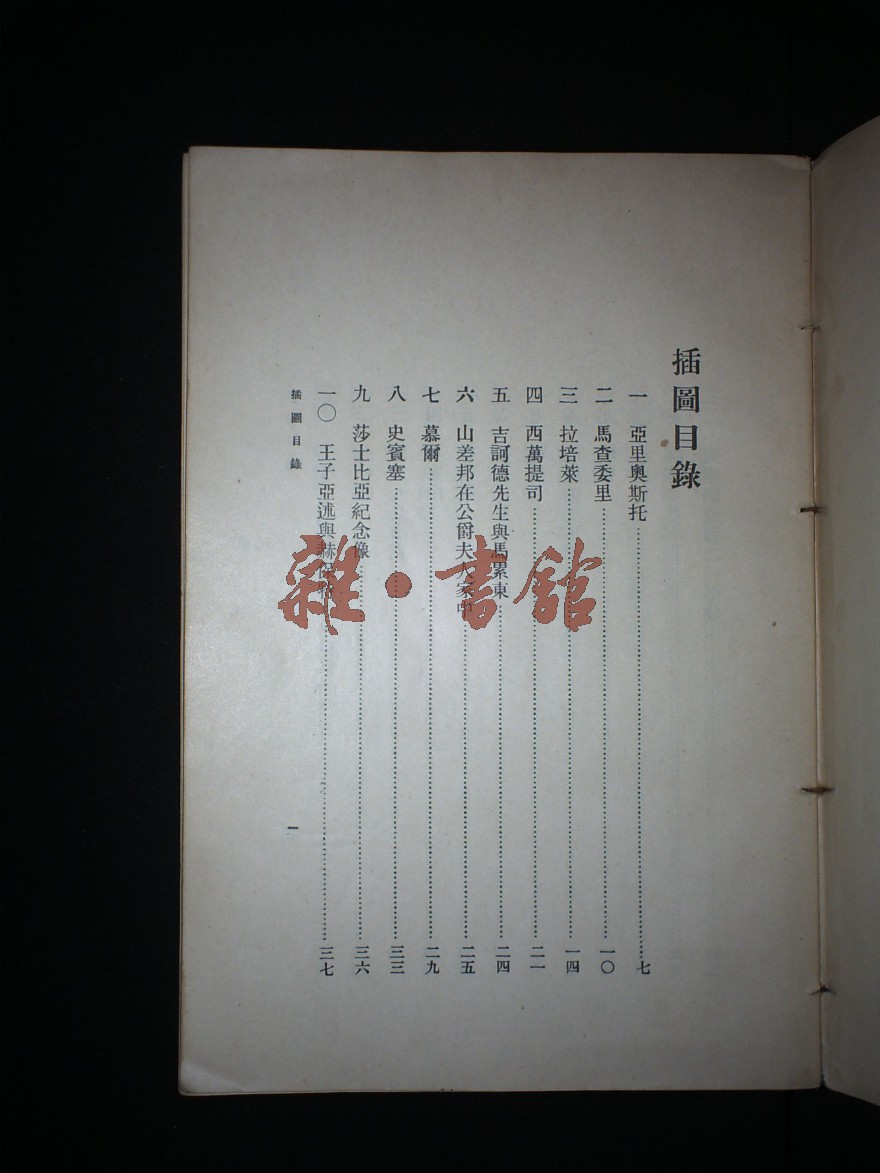 插圖目錄
一 亞里奧斯托……七
二 馬查委里……一〇
三 拉培萊……一四
四 西萬提司……二一
五 吉訶德先生與馬累東……二四
六 山差邦在公爵夫人家中……二五
七 慕爾……二九
八 史賓塞……三三
九 莎士比亞紀念像……三六
一〇 王子亞述與赫保特……三七
插圖目錄
一
雜·書館